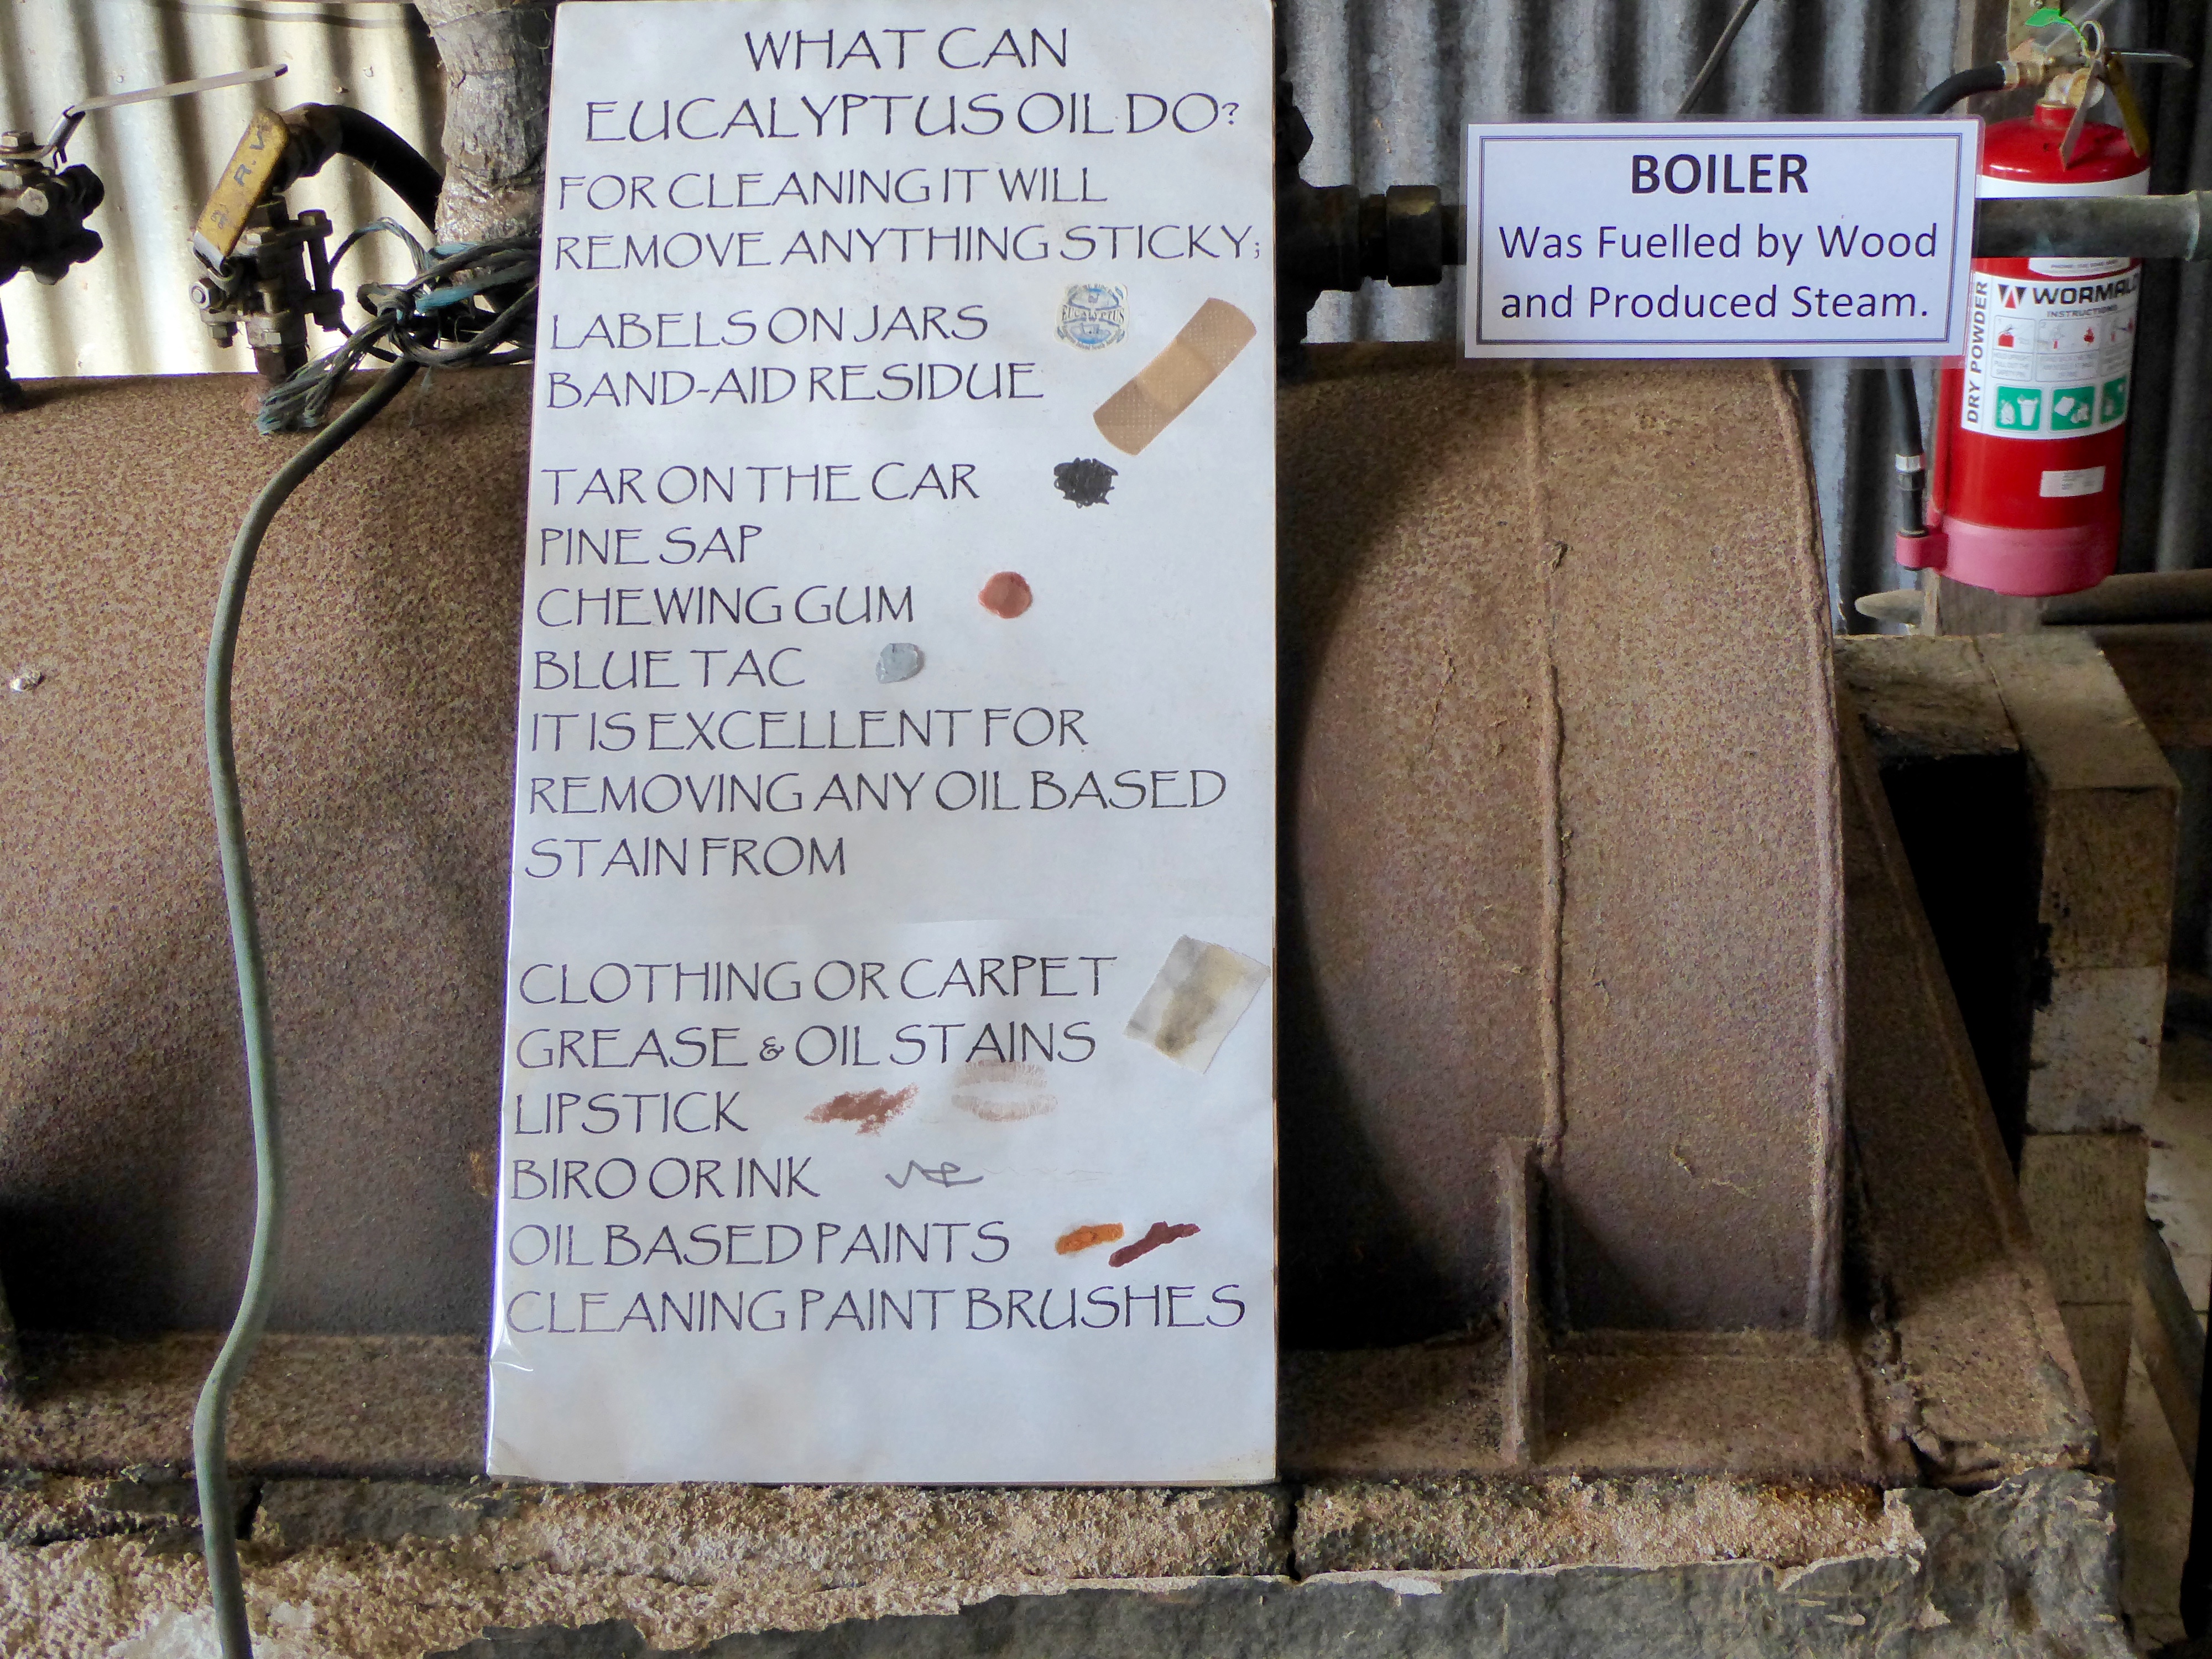 WHAT CAN
EUCALYPTUS OIL DO?
FOR CLEANING IT WILL
REMOVE ANYTHING STICKY;
LABELS ON JARS
EUCALYPTUS
BAND-AID RESIDUE
TAR ON THE CAR
PINE SAP
CHEWING GUM
BLUE TAC
IT IS EXCELLENT FOR
REMOVING ANY OIL BASED
STAIN FROM
CLOTHING OR CARPET
GREASE & OIL STAINS
LIPSTICK
BIRO OR INK
OIL BASED PAINTS
CLEANING PAINT BRUSHES
BOILER
Was Fuelled by Wood
and Produced Steam.
WORMALD
INSTRUCTIONS
DRY POWDER
R.W